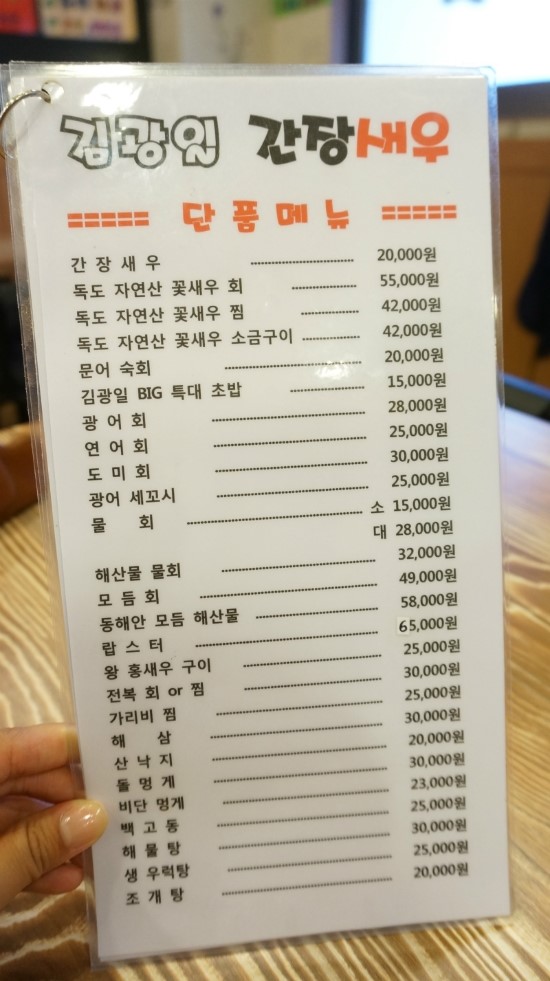 김광일 간장새우
===== 단 품 메 뉴 =====
간 장 새 우 ........ 20,000원
독도 자연산 꽃새우 회 ........ 55,000원
독도 자연산 꽃새우 찜 ........ 42,000원
독도 자연산 꽃새우 소금구이 ........ 42,000원
문어 숙회 ........ 20,000원
김광일 BIG 특대 초밥 ........ 15,000원
광 어 회 ........ 28,000원
연 어 회 ........ 25,000원
도 미 회 ........ 30,000원
광어 세꼬시 ........ 25,000원
물 회 ........ 소 15,000원
대 28,000원
해산물 물회 ........ 32,000원
모 듬 회 ........ 49,000원
동해안 모듬 해산물 ........ 58,000원
랍 스 터 ........ 65,000원
왕 홍새우 구이 ........ 25,000원
전복 회 or 찜 ........ 30,000원
가리비 찜 ........ 25,000원
해 삼 ........ 30,000원
산 낙 지 ........ 20,000원
돌 멍 게 ........ 30,000원
비단 멍게 ........ 23,000원
백 고 동 ........ 25,000원
해 물 탕 ........ 30,000원
생 우럭탕 ........ 25,000원
조 개 탕 ........ 20,000원